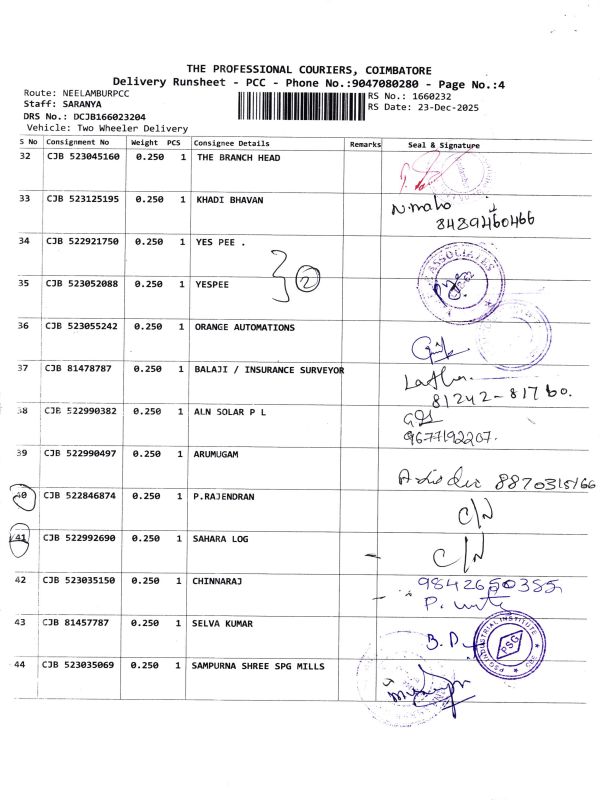 THE PROFESSIONAL COURIERS, COIMBATORE
Delivery Runsheet - PCC - Phone No.:9047080280 - Page No.:4
Route: NEELAMBURPCC
RS No.: 1660232
Staff: SARANYA
RS Date: 23-Dec-2025
DRS No.: DCJB166023204
Vehicle: Two Wheeler Delivery
S No Consignment No Weight PCS Consignee Details Remarks Seal & Signature
32 CJB 523045160 0.250 1 THE BRANCH HEAD
33 CJB 523125195 0.250 1 KHADI BHAVAN
8489460466
34 CJB 522921750 0.250 1 YES PEE .
2
ASSOCIATES
35 CJB 523052088 0.250 1 YESPEE
36 CJB 523055242 0.250 1 ORANGE AUTOMATIONS
37 CJB 81478787 0.250 1 BALAJI / INSURANCE SURVEYOR
81242-81760.
38 CJB 522990382 0.250 1 ALN SOLAR P L
9677192207.
39 CJB 522990497 0.250 1 ARUMUGAM
40 CJB 522846874 0.250 1 P.RAJENDRAN
C/N
41 CJB 522992690 0.250 1 SAHARA LOG
C/N
42 CJB 523035150 0.250 1 CHINNARAJ
9842650385
43 CJB 81457787 0.250 1 SELVA KUMAR
PSG INDUSTRIAL INSTITUTE
PSG
44 CJB 523035069 0.250 1 SAMPURNA SHREE SPG MILLS